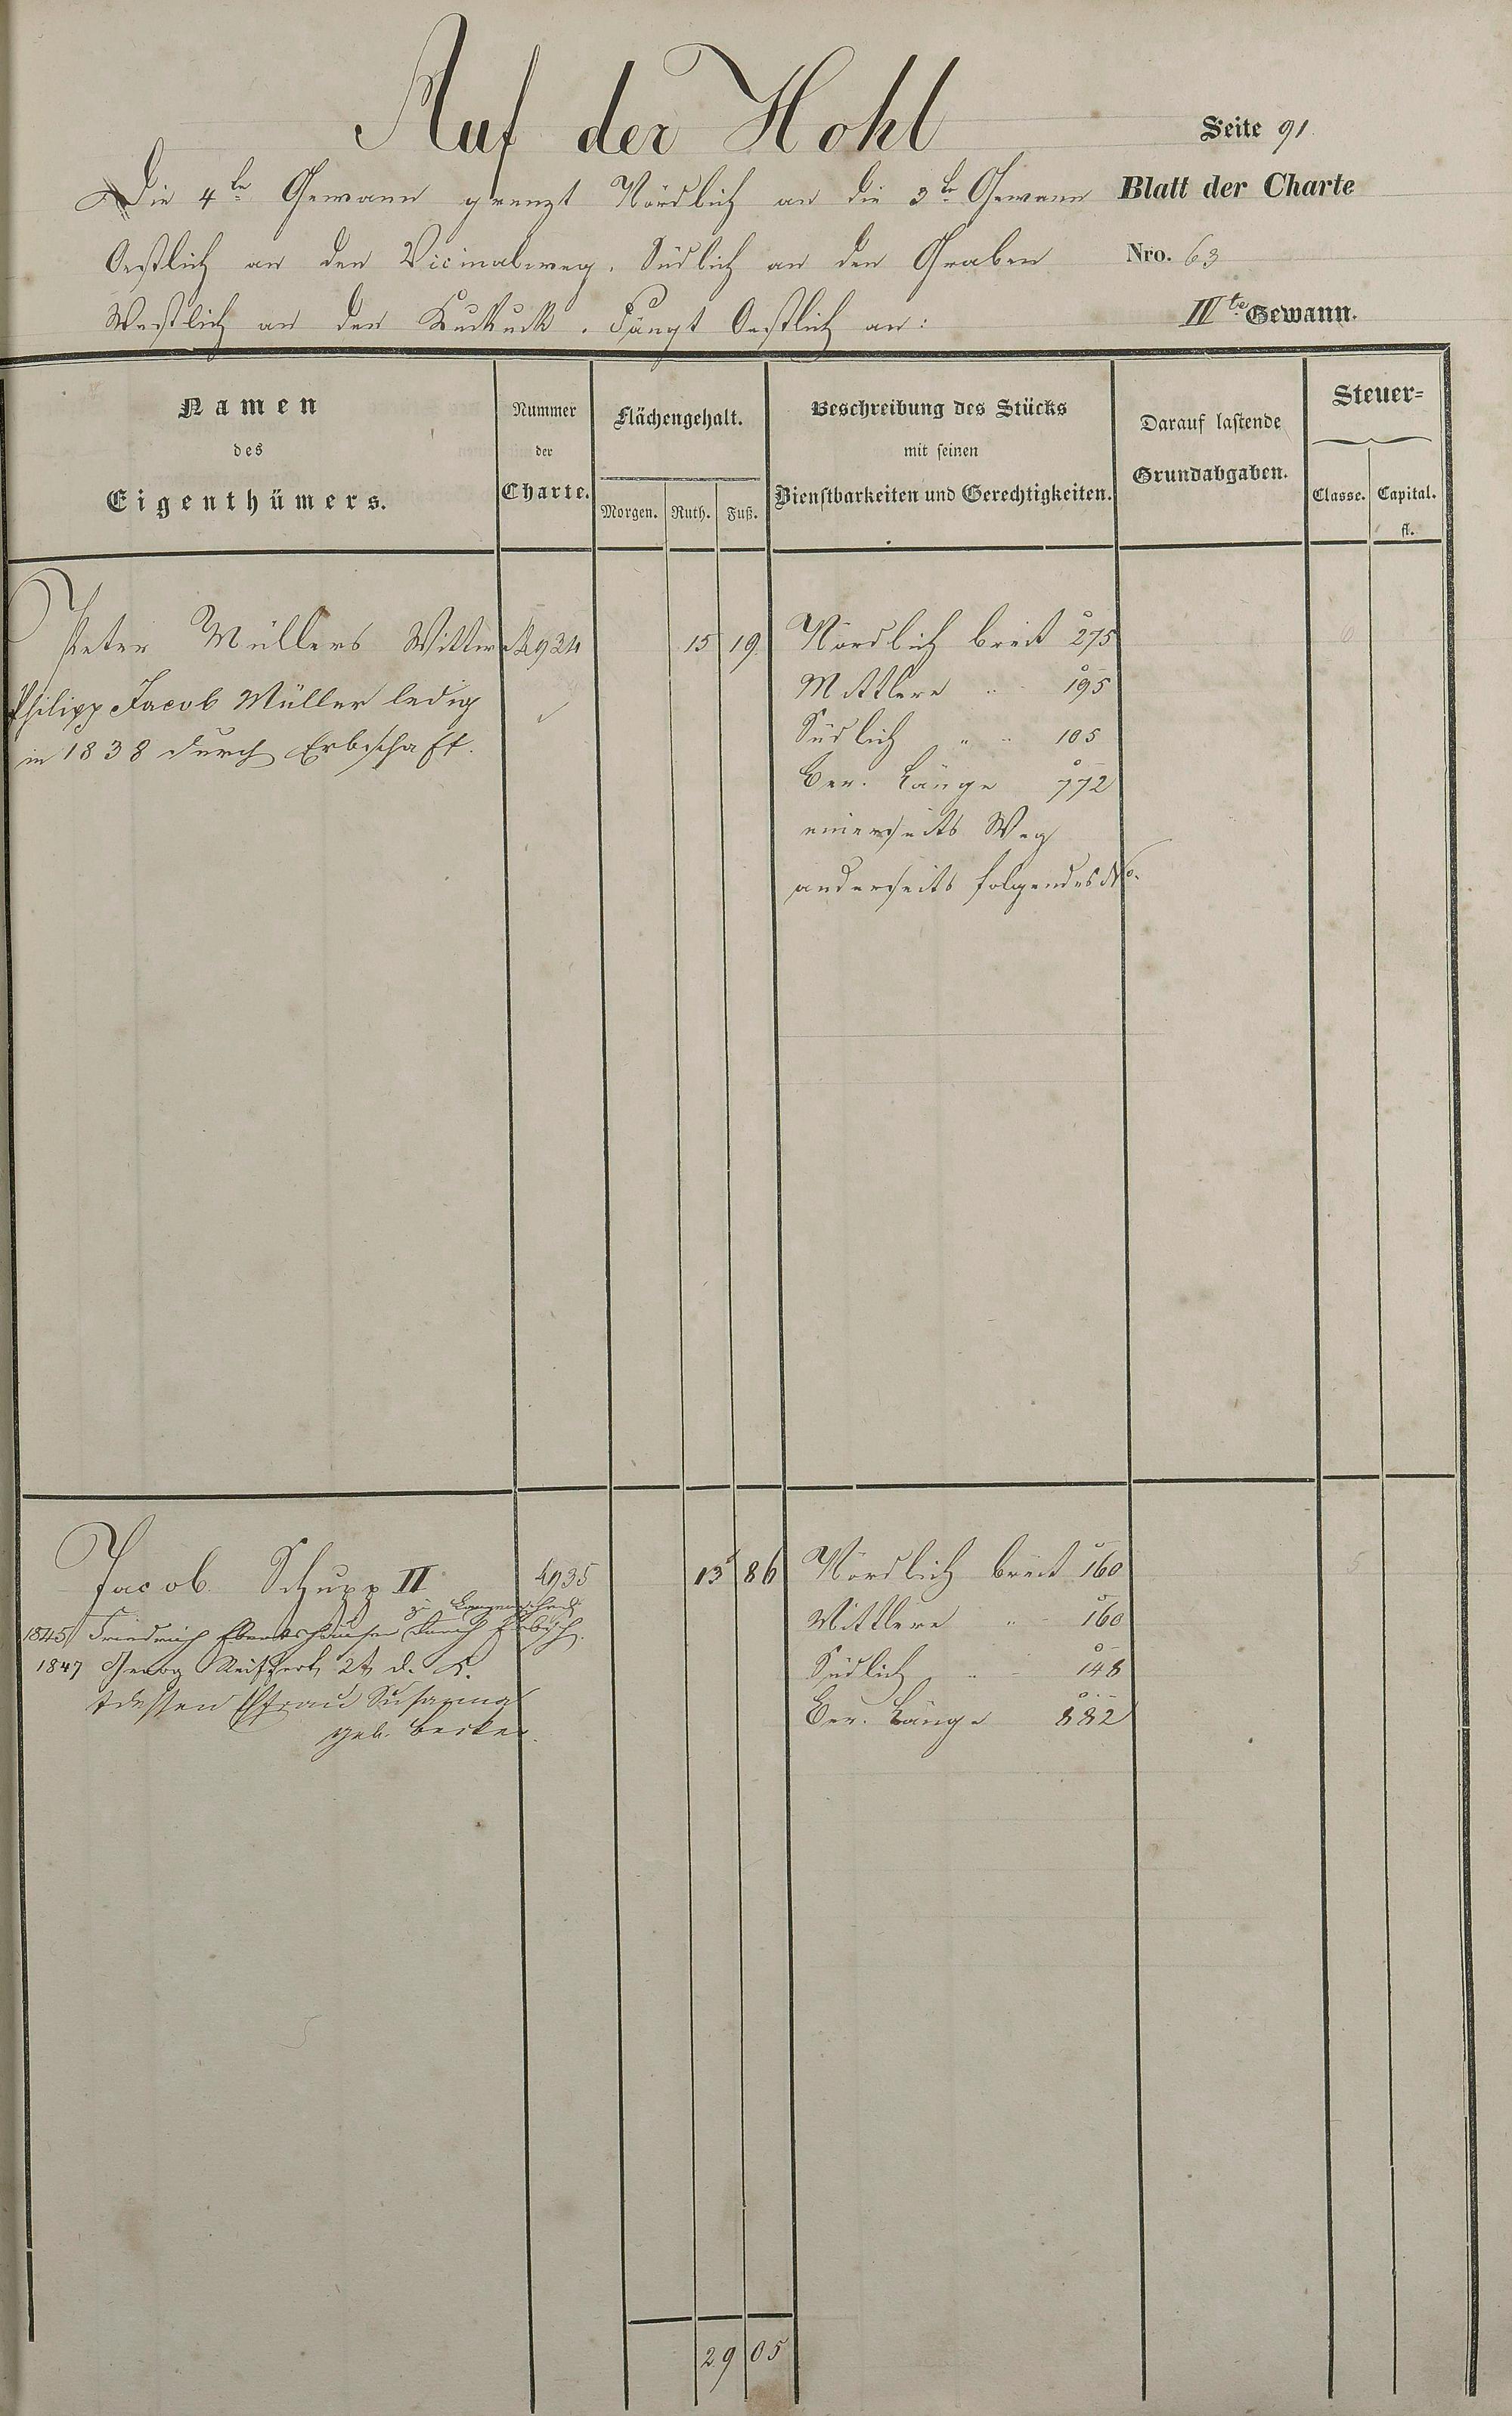 Auf der Hohl
Seite 91.
Die 4te Gewann grenzt Nördlich an die 3te Gewann
Blatt der Charte
Oestlich an den Vicinalweg. Südlich an den Graben
Nro. 63
Westlich an den Kuckuck. Fängt Oestlich an:
IVte Gewann.
Namen
des
Eigenthümers.
Nummer
der
Charte.
Flächengehalt.
Morgen. Ruth. Fuß.
Beschreibung des Stücks
mit seinen
Dienstbarkeiten und Gerechtigkeiten.
Darauf lastende
Grundabgaben.
Steuer=
Classe. Capital.
fl.
Peter Müllers Wittwe 4934 15 19 Nördlich breit 275
Philipp Jacob Müller ledig
in 1838 durch Erbschaft.
Mittlere " 195
Südlich " 105
Ber. Länge 772
einerseits Weg
anderseits folgendes No.
Jacob Schupp II 4935 13 86 Nördlich breit 160 5
1845 Friedrich Ebertshäuser durch Erbsch.
1847 Georg Reifferth 2t d. K.
dessen Ehefrau Susanna
geb. Becker.
Mittlere " 160
Südlich " 148
Ber. Länge 882
29 05